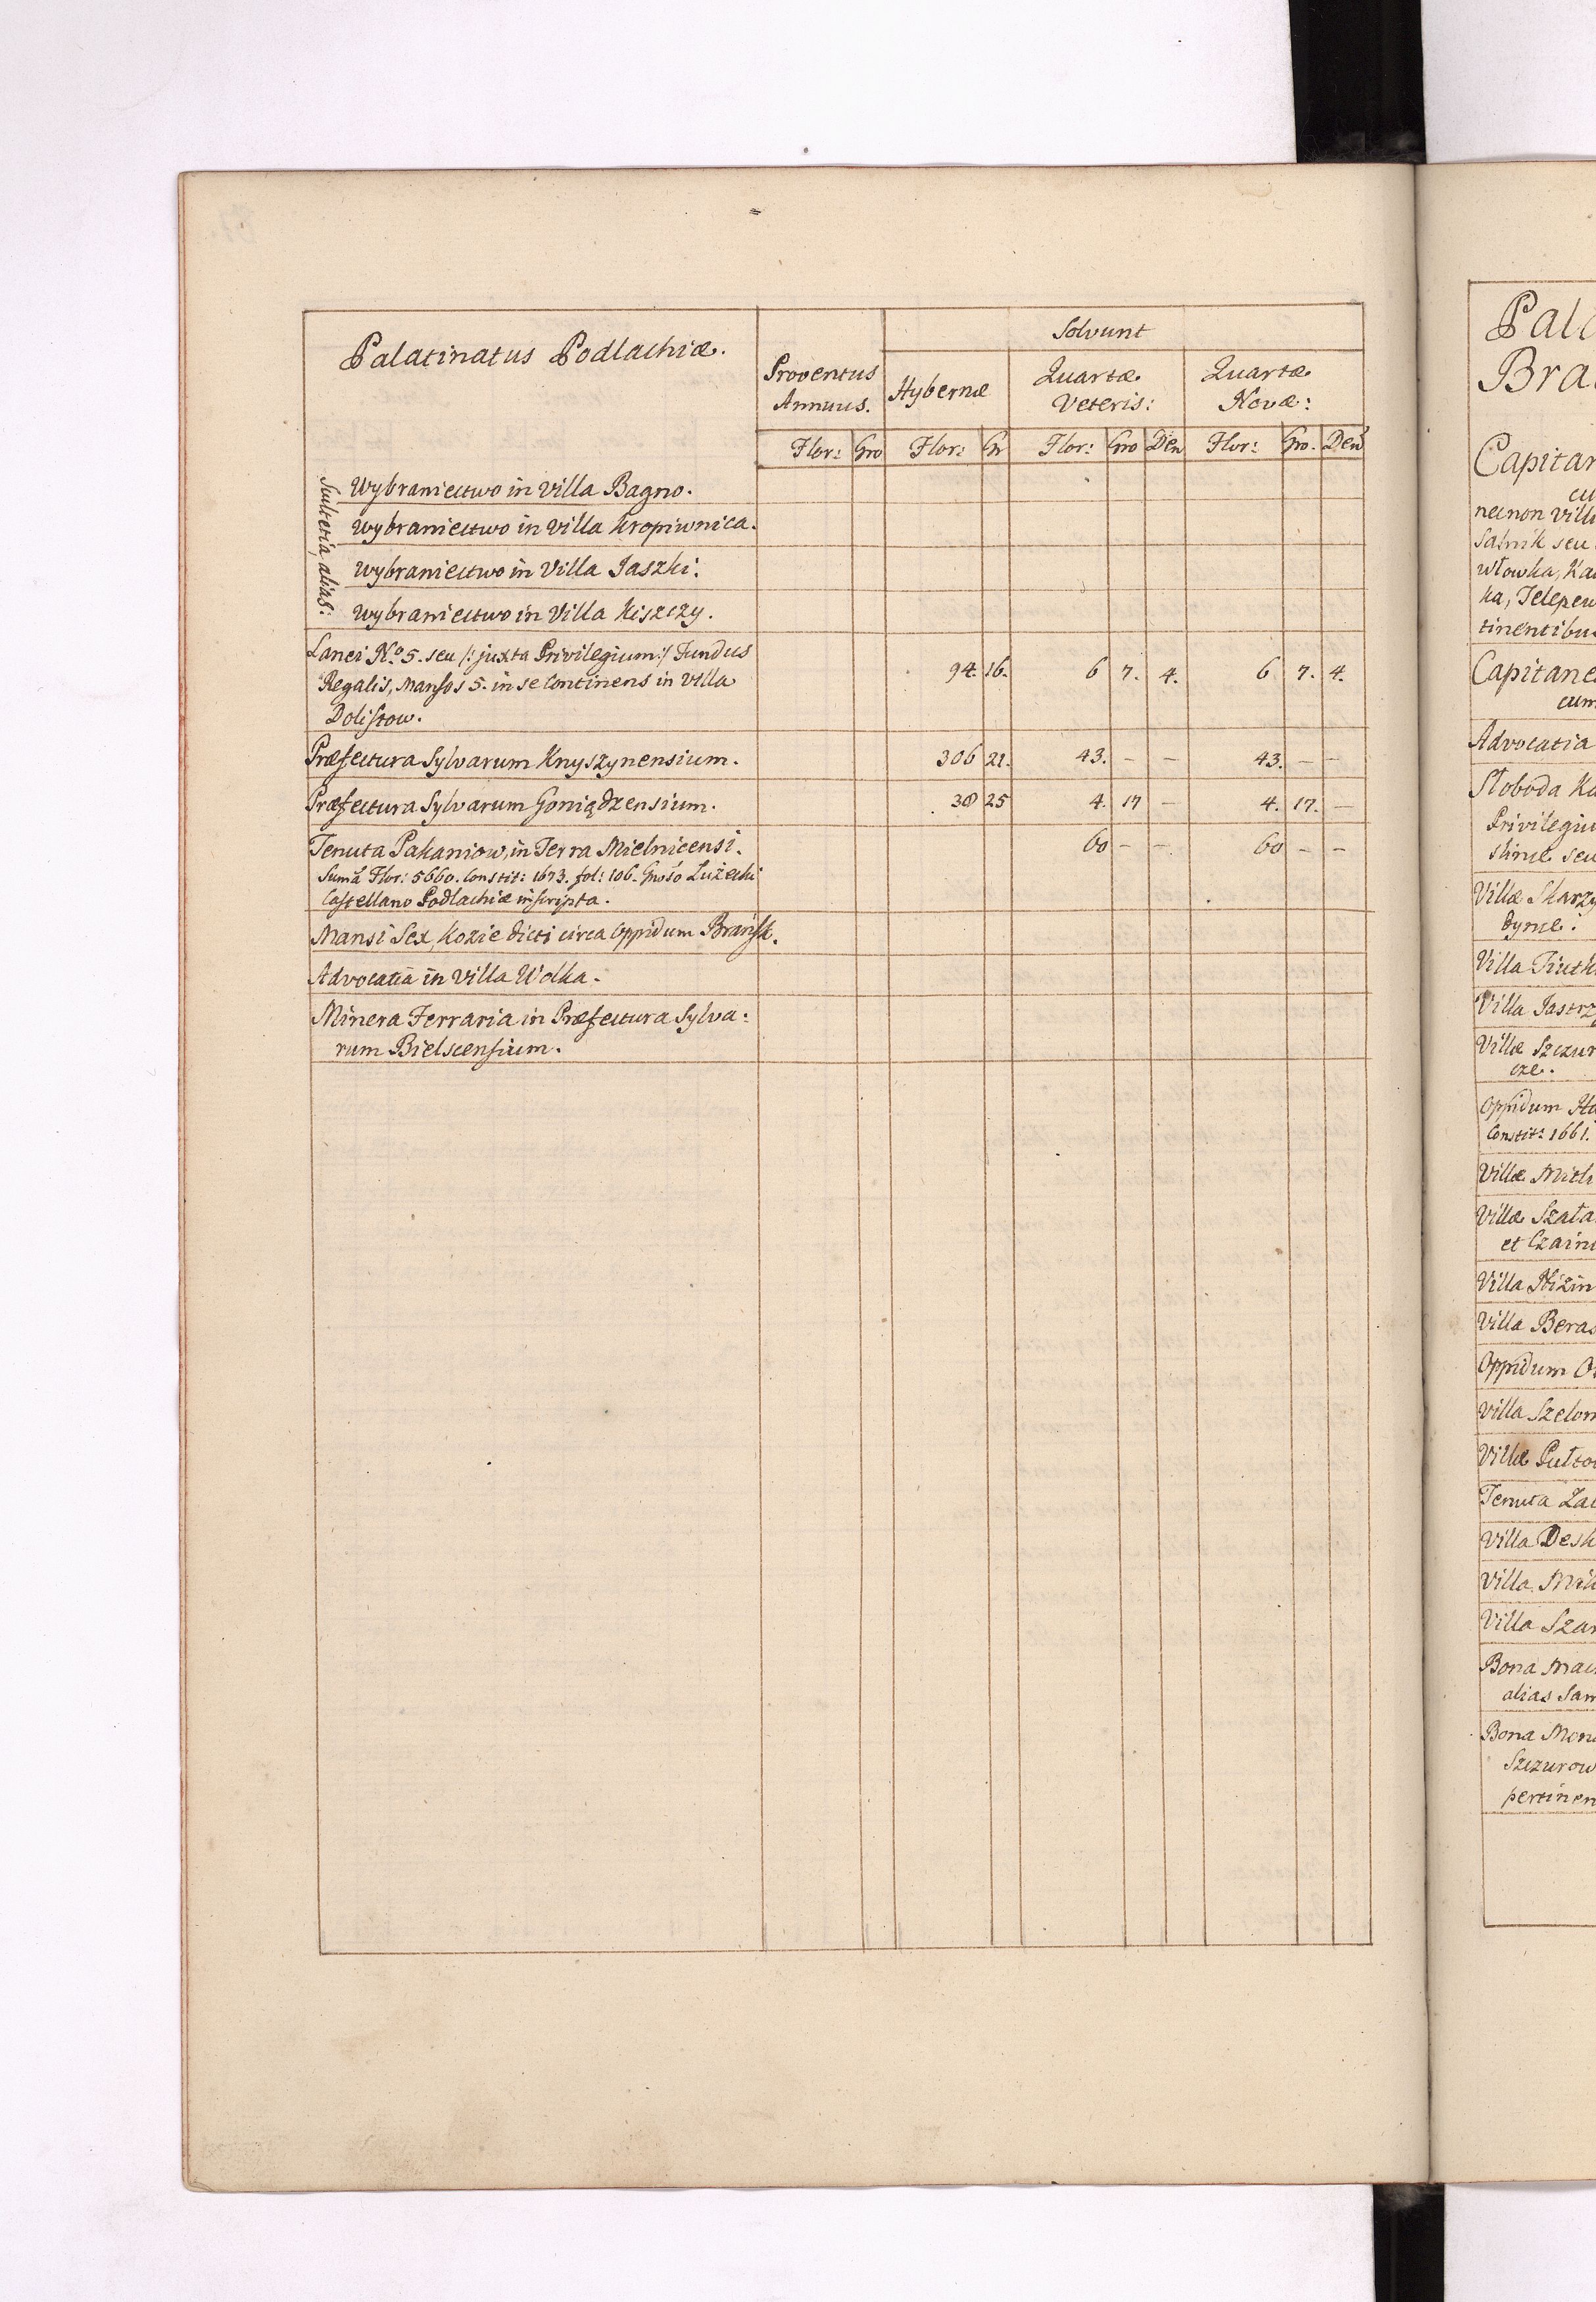 Palatinatus Podlachiæ.
Proventus
Annuus.
Solvunt
Hybernæ
Quartæ
Veteris:
Quartæ
Novæ:
Flor: Gro Flor: Gr Flor: Gro Den Flor: Gro. Den
Scultetia, alias:
Wybraniectwo in Villa Bagno.
Wybraniectwo in Villa Kropiwnica.
Wybraniectwo in Villa Jaszki.
Wybraniectwo in Villa Kiszczy.
Lanei No 5. seu /: juxta Privilegium:/ Fundus
Regalis, Mansos 5. in se Continens in Villa 94. 16. 6 7. 4. 6 7. 4.
Dolistow.
Præfectura Sylvarum Knyszynensium. 306 21. 43. – – 43. – –
Præfectura Sylvarum Goniądzensium. 38 25 4. 17 – 4. 17. –
Tenuta Pakaniow, in Terra Mielnicensi. 60 – – 60 – –
Sumâ Flor: 5660. Constit: 1673. fol: 106. Gnoso Łużecki
Castellano Podlachiæ inscripta.
Mansi Sex, Kozie dicti circa Oppidum Brańsk.
Advocatia in Villa Wolka.
Minera Ferraria in Præfectura Sylva:
rum Bielscensium.
Pal
Bra
Capitan
cu
necnon Vill
Satnik seu
włowka, Ka
ka, Telepew
tinentibus
Capitane
cum
Advocatia
Słoboda Ka
Privilegiu
skine seu
Villæ Skarzy
dyne:
Villa Trutk
Villa Jastrz
Villæ Szczur
cze.
Oppidum
Constit: 1661.
Villæ Mich
Villæ Szata
et Czain
Villa
Villa Beras
Oppidum O
Villa Szelom
Villæ Pułto
Tenuta Za
Villa Desk
Villa Mik
Villa Szar
Bona Mac
alias Sam
Bona Mon
Szczurow
pertinen